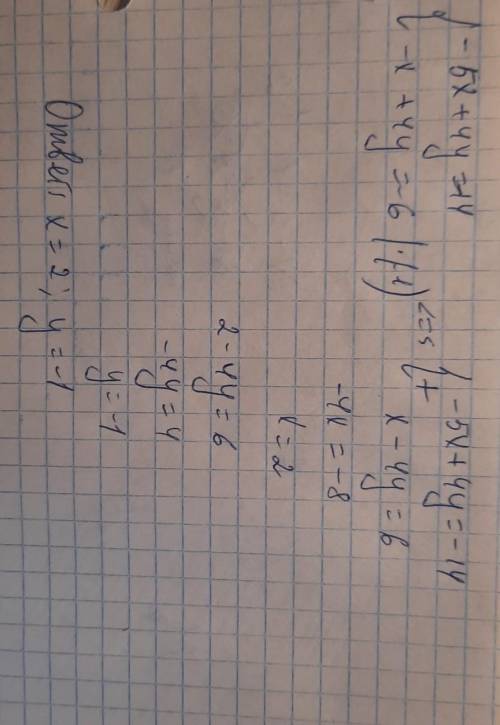 { -5x + 4y = -14
{ -x + 4y = 6 | ·(-1) <=> + { -5x + 4y = -14
x - 4y = 6
-4x = -8
x = 2
2 - 4y = 6
-4y = 4
y = -1
Ответ: x = 2; y = -1